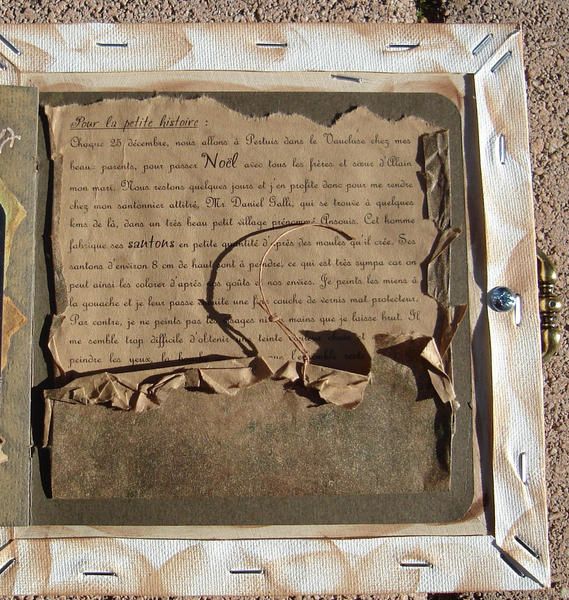 Pour la petite histoire :
Chaque 25 décembre, nous allons à Pertuis dans le Vaucluse chez mes
beau- parents, pour passer Noël avec tous les frères et sœur d'Alain
mon mari. Nous restons quelques jours et j'en profite donc pour me rendre
chez mon santonnier attitré, Mr Daniel Galli, qui se trouve à quelques
kms de là, dans un très beau petit village prénommé Ansouis. Cet homme
fabrique ses santons en petite quantité d'après des moules qu'il crée. Ses
santons d'environ 8 cm de haut sont à peindre, ce qui est très sympa car on
peut ainsi les colorer d'après nos goûts et nos envies. Je peints les miens à
la gouache et je leur passe ensuite une fine couche de vernis mat protecteur.
Par contre, je ne peints pas les visages ni les mains que je laisse brut. Il
me semble trop difficile d'obtenir une teinte couleur chair et
peindre les yeux, la que l'ensemble reste